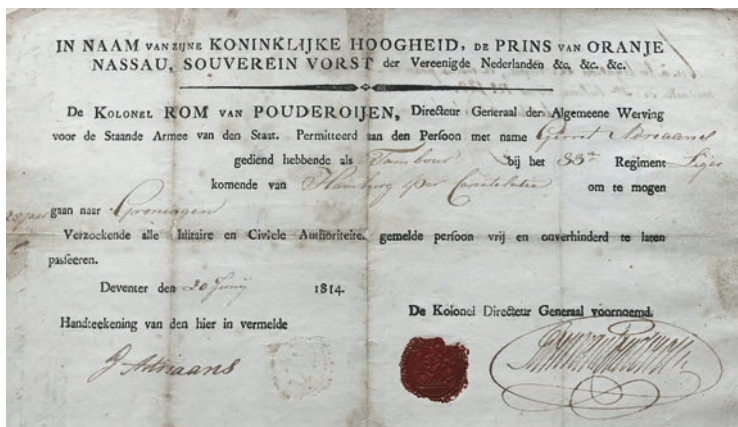 IN NAAM VAN ZIJNE KONINKLIJKE HOOGHEID, DE PRINS VAN ORANJE
NASSAU, SOUVEREIN VORST der Vereenigde Nederlanden &c. &c. &c.
De KOLONEL ROM VAN POUDEROIJEN, Directeur Generaal der Algemeene Werving
voor de Staande Armee van den Staat. Permitteerd aan den Persoon met name Gerrit Adriaans
gediend hebbende als Tambour bij het 33ste Regiment Liger
komende van Hamburg par Capitulatie om te mogen
gaan naar Groningen
Verzoekende alle Militaire en Civiele Authoriteite, gemelde persoon vrij en onverhinderd te laten
passeeren.
Deventer den 20 Junij 1814.
De Kolonel Directeur Generaal voornoemd.
Handteekening van den hier in vermelde
G Adriaans